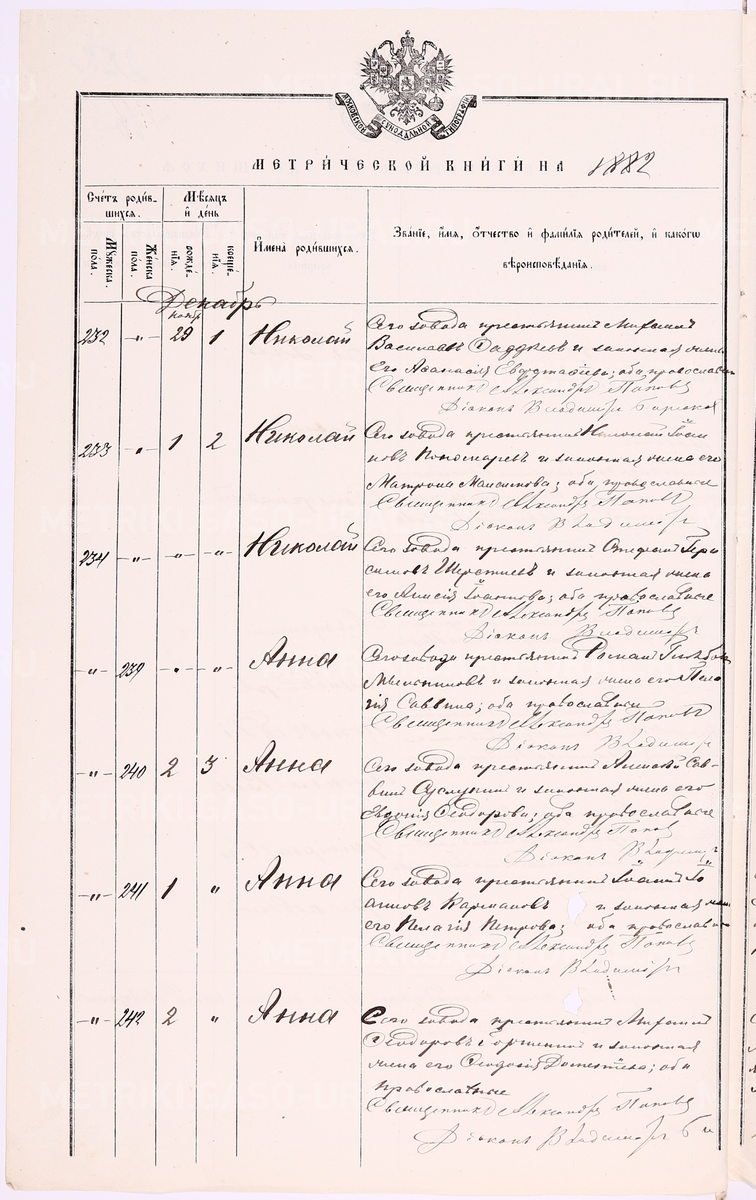 МОСКОВСКОЙ СѴНОДАЛЬНОЙ ТИПОГРАФІИ
МЕТРИ́ЧЕСКОЙ КНИ́ГИ НА 1882
Сче́тъ роди́в-
шихся.
Мѣ́сяцъ
и҆ де́нь
И҆мена̀ роди́вшихся.
Зва́нїе, и҆́мя, ѻ҆́тчество и҆ фами́лїѧ роди́телей, и҆ како́гѡ
вѣроисповѣ́данїѧ.
Му́жеска по́ла.
Же́нска по́ла.
рожде́-нїѧ.
креще́-нїѧ.
Декабрь
232 -"- ноябр 29 1 Николай
Сего завода крестьянинъ
Василіевъ и законная жена
его Аѳанасія; оба православн
Священникъ Александръ Поповъ
Діаконъ Владиміръ
233 " 1 2 Николай
Сего завода крестьянинъ Николай
Пономаревъ и законная жена его
Матрона Максимова; оба православные
Священникъ Александръ Поповъ
Діаконъ Владиміръ
234 -"- -"- -"- Николай
Сего завода крестьянинъ Стефанъ Гера
симовъ и законная жена
его Анисія Іоаннова; оба православные
Священникъ Александръ Поповъ
Діаконъ Владиміръ
-"- 239 -"- -"- Анна
Сего завода крестьянинъ Романъ Глѣбовъ
Мыльниковъ и законная жена его Пела
гія Саввина; оба православные
Священникъ Александръ Поповъ
Діаконъ Владиміръ
-"- 240 2 3 Анна
Сего завода крестьянинъ Алексѣй Сав
винъ и законная жена его
Евдокія Ѳеодорова; оба православные
Священникъ Александръ Поповъ
Діаконъ Владиміръ
-"- 241 1 " Анна
Сего завода крестьянинъ Іоаннъ Іо
анновъ Кармановъ и законная жена
его Пелагія Петрова; оба православн
Священникъ Александръ Поповъ
Діаконъ Владиміръ
-"- 242 2 " Анна
Сего завода крестьянинъ
Ѳеодоровъ и законная
жена его Ѳеодосія Дометіева; оба
православные
Священникъ Александръ Поповъ
Діаконъ Владиміръ